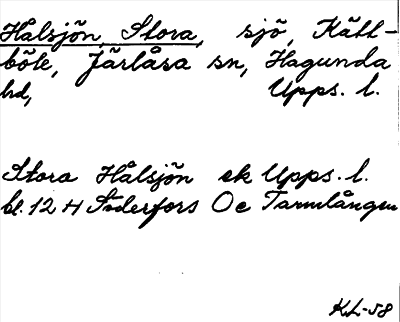 Halsjön, Stora, sjö, Kätt-
böle, Järlåsa sn, Hagunda
hd, Upps. l.
Stora Hålsjön ek Upps. l.
bl. 12 H Söderfors Oe Tarmlången
KL-58